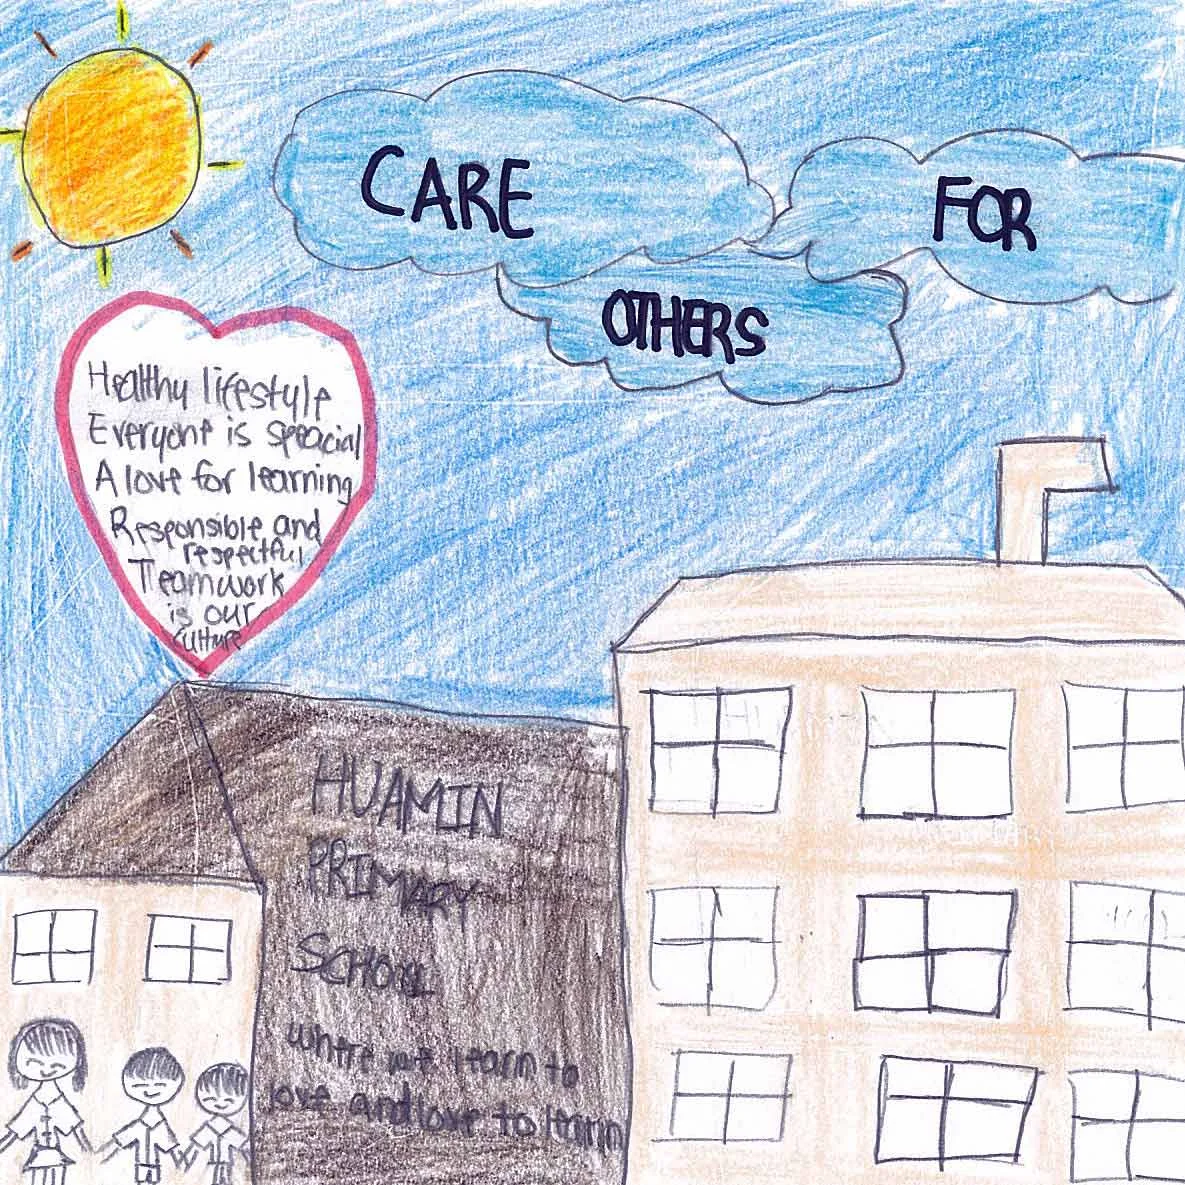 CARE
FOR
OTHERS
Healthy lifestyle
Everyone is speacial
A love for learning
Responsible and
respectful
Teamwork
is our
culture
HUAMIN
PRIMARY
SCHOOL
where we learn to
love and love to learn